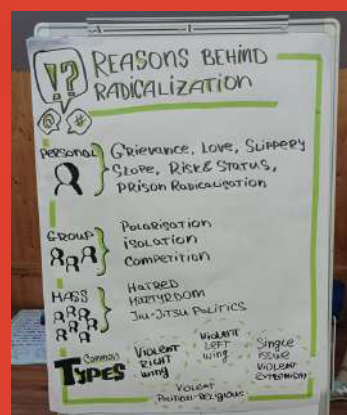 !?
REASONS BEHIND
RADICALIZATION
@ #
PERSONAL
Grievance, Love, Slippery
Slope, Risk & Status,
Prison Radicalisation
GROUP
Polarisation
isolation
Competition
MASS
Hatred
Martyrdom
Jiu-Jitsu Politics
Common
TYPES
Violent
Right
wing
Violent
Left
wing
Single
issue
Violent
Extremism
Violent
Politico-Religious